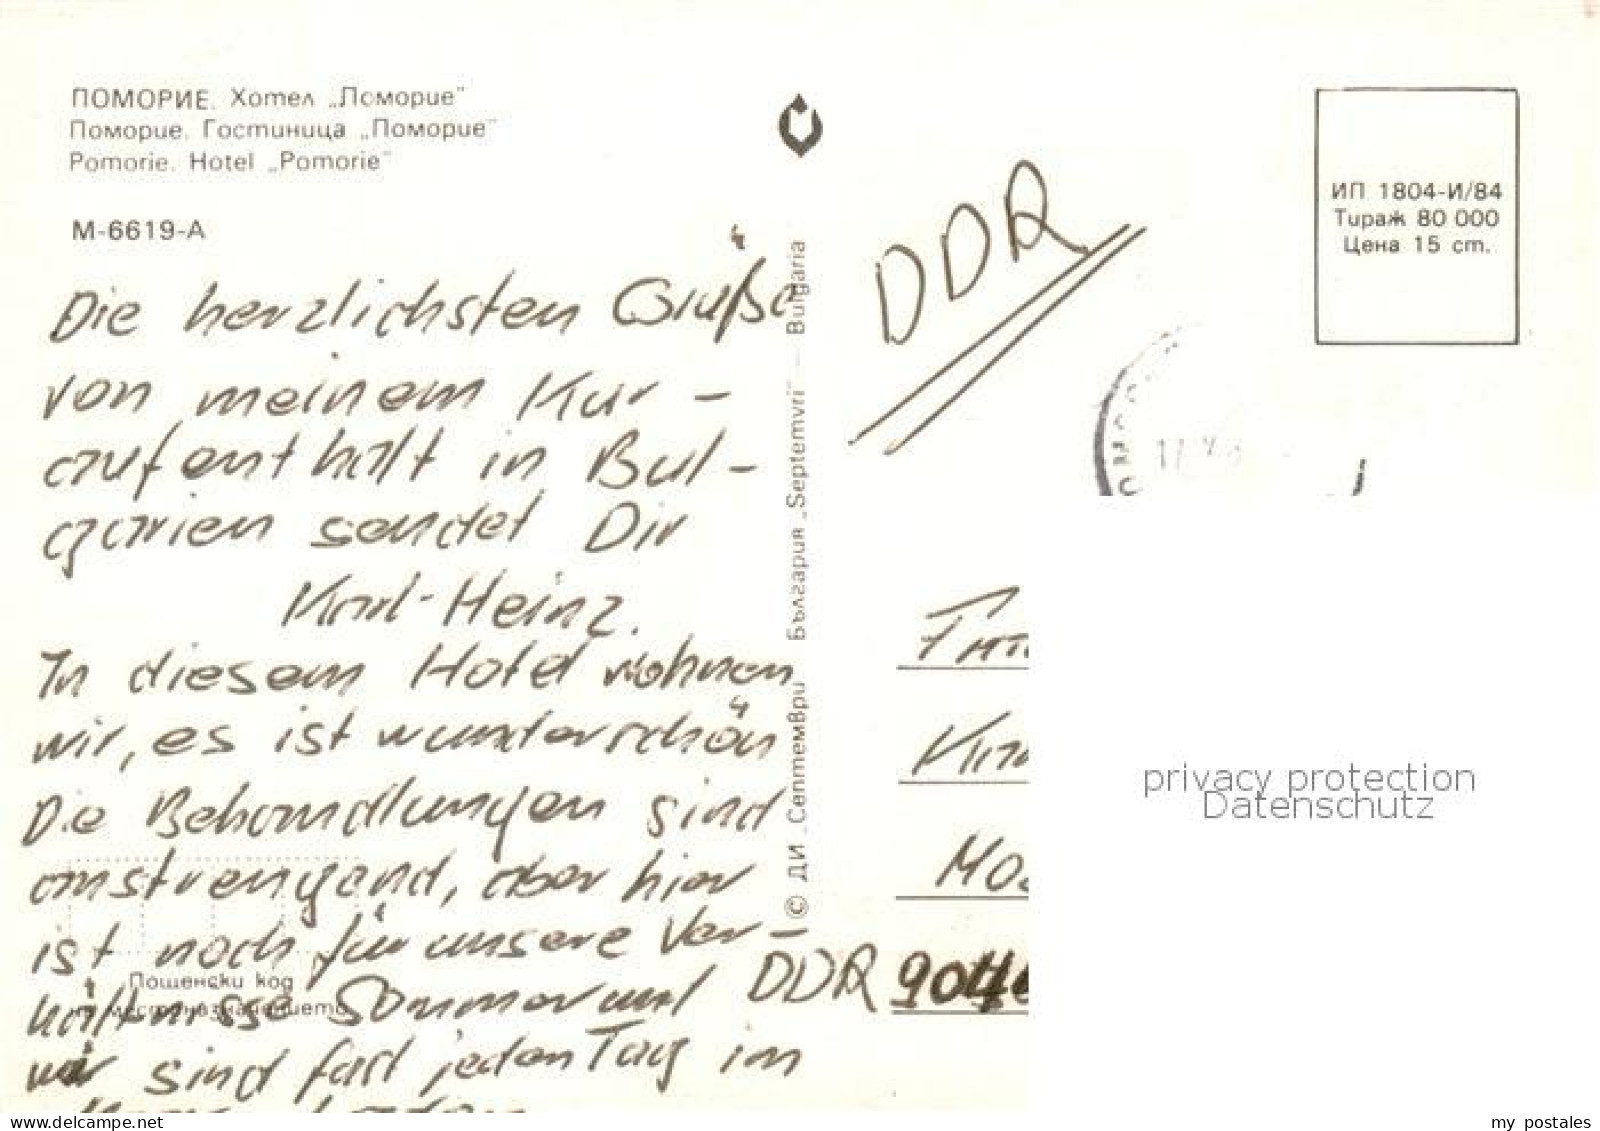 ПОМОРИЕ. Хотел „Поморие"
Поморие. Гостиница „Поморие"
Pomorie. Hotel „Pomorie"
M-6619-A
Die herzlichsten Grüße
von meinem Kur-
aufenthalt in Bul-
garien sendet Dir
Karl-Heinz.
In diesem Hotel wohnen
wir, es ist wunderschön
Die Behandlungen sind
anstrengend, aber hier
ist noch für unsere Ver-
hältnisse Sommer und
wir sind fast jeden Tag im
Пощенски код
на местоназначението
© ДИ „Септември" България „Septemvri" — Bulgaria
DDR
ИП 1804-И/84
Тираж 80 000
Цена 15 ст.
DDR 904
privacy protection
Datenschutz
my postales
www.delcampe.net